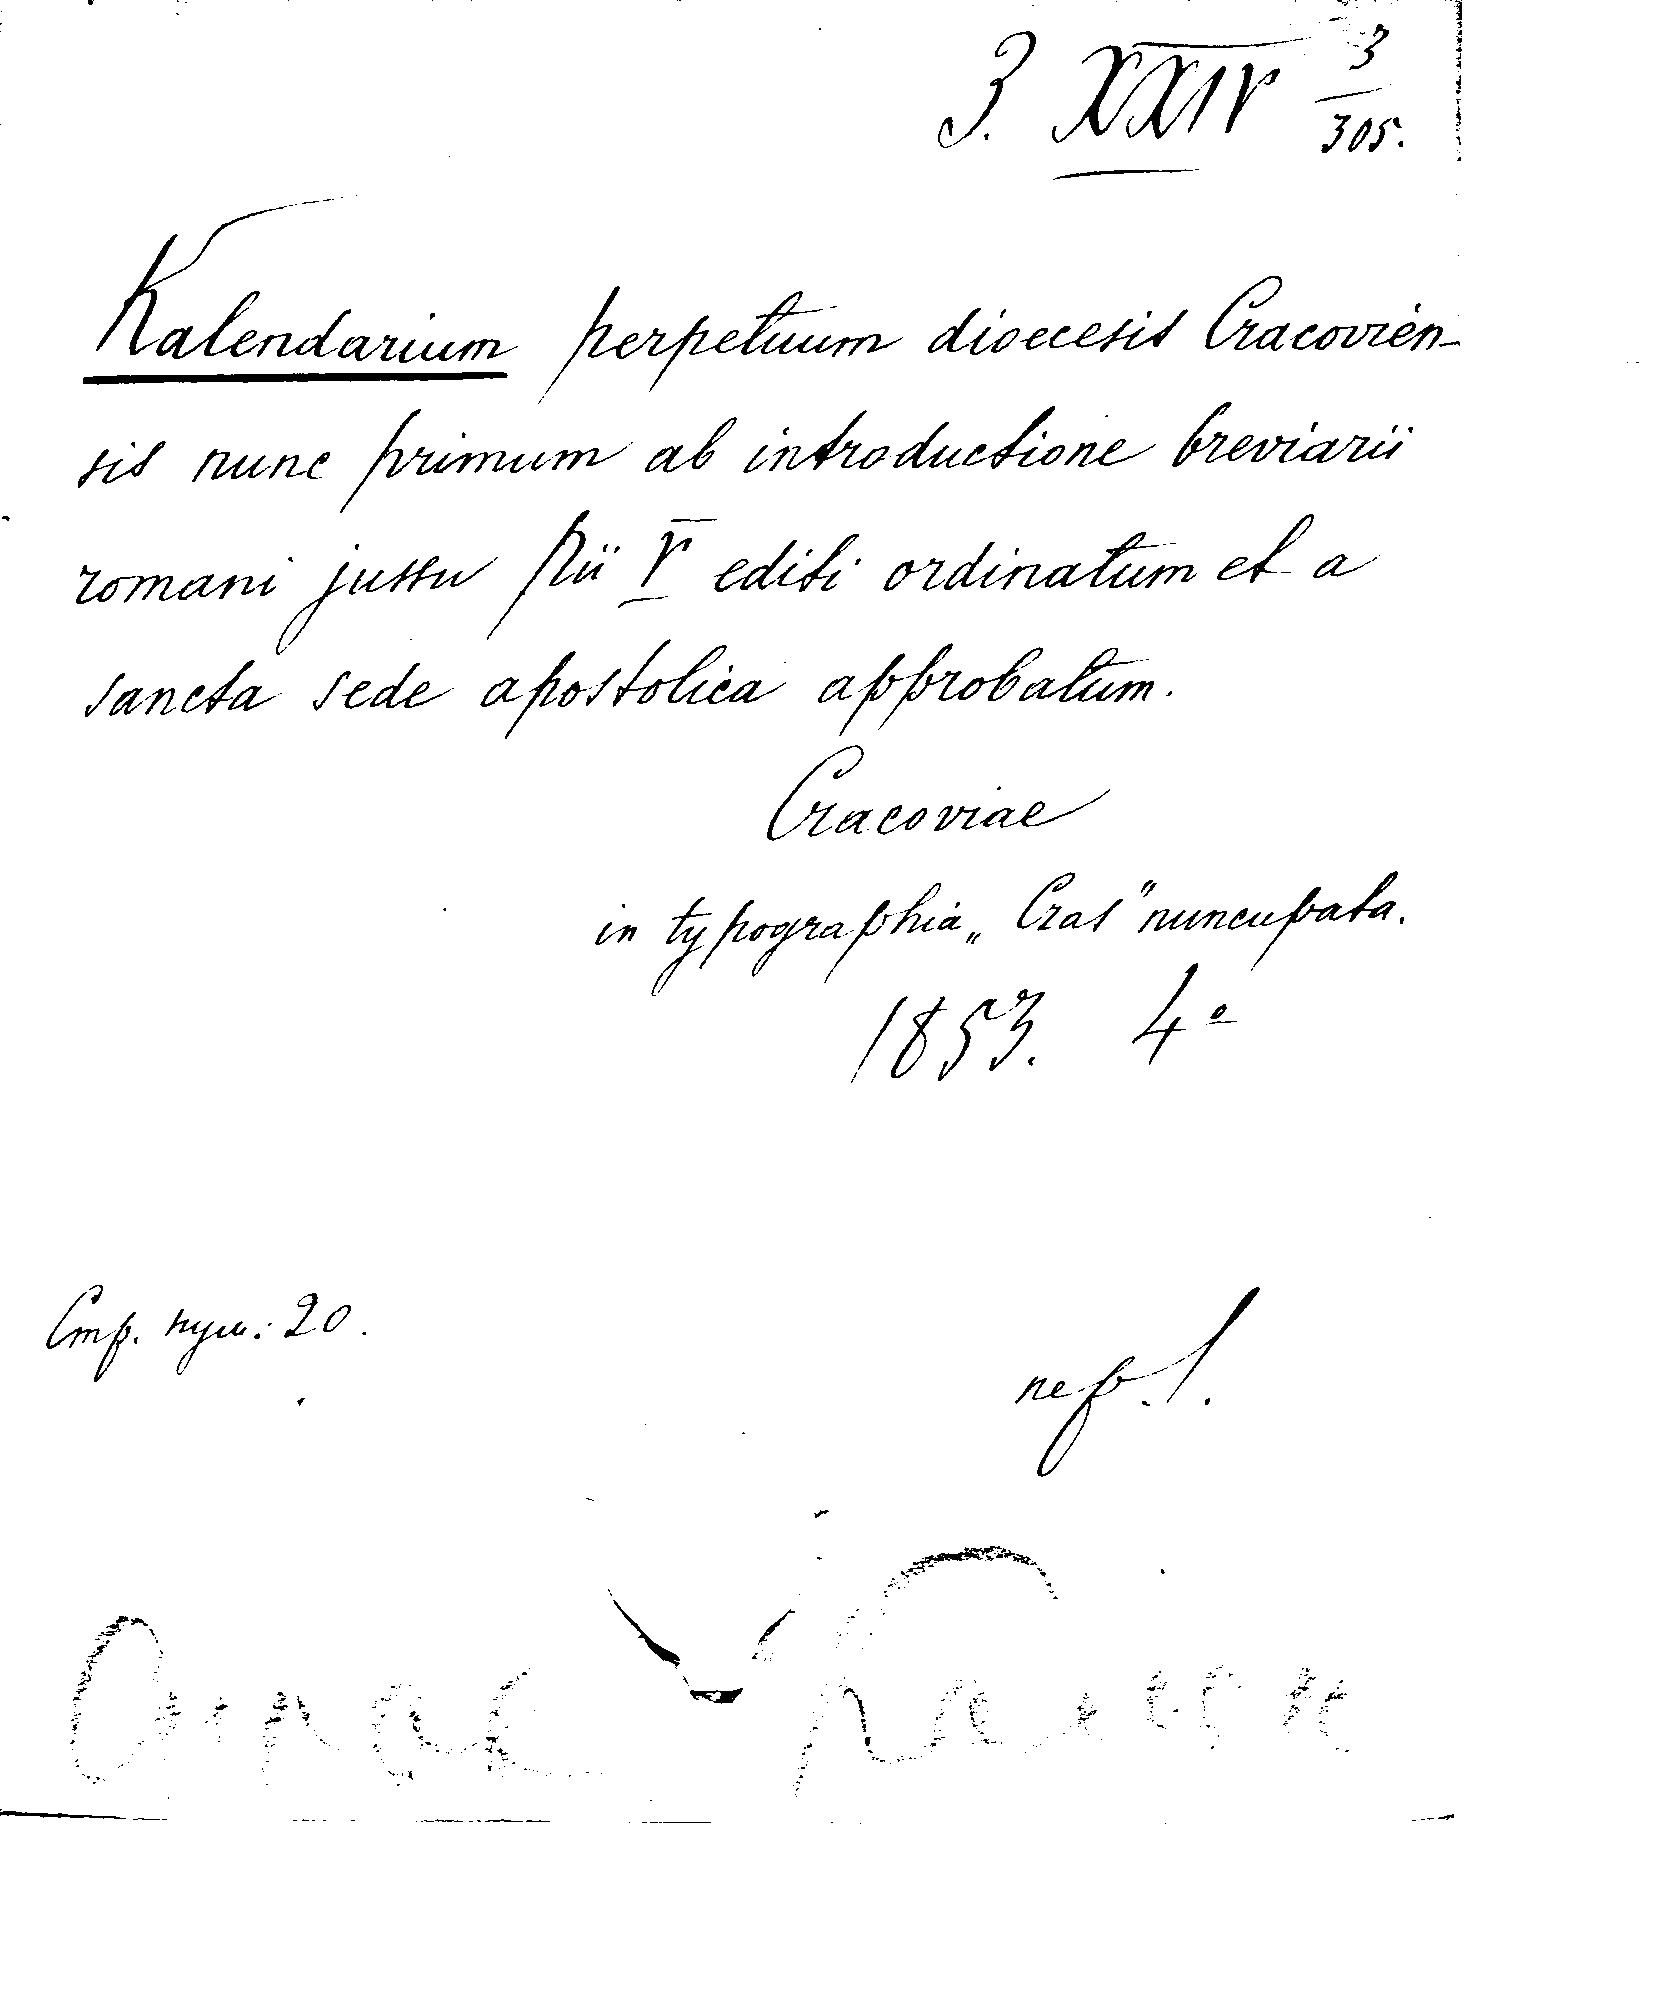 3. XXIV 3/305.
Kalendarium perpetuum dioecesis Cracovien-
sis nunc primum ab introductione breviarii
romani jussu Pii V editi ordinatum et a
sancta sede apostolica approbatum.
Cracoviae
in typographia „Czas" nuncupata.
1853. 4º
Стр. нум: 20.